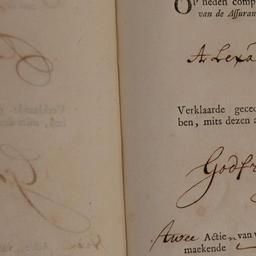 Op neden comp
van de Assuran
Alexa
Verklaarde geced
ben, mits dezen a
Godfr
Twee Actie van v
maekende